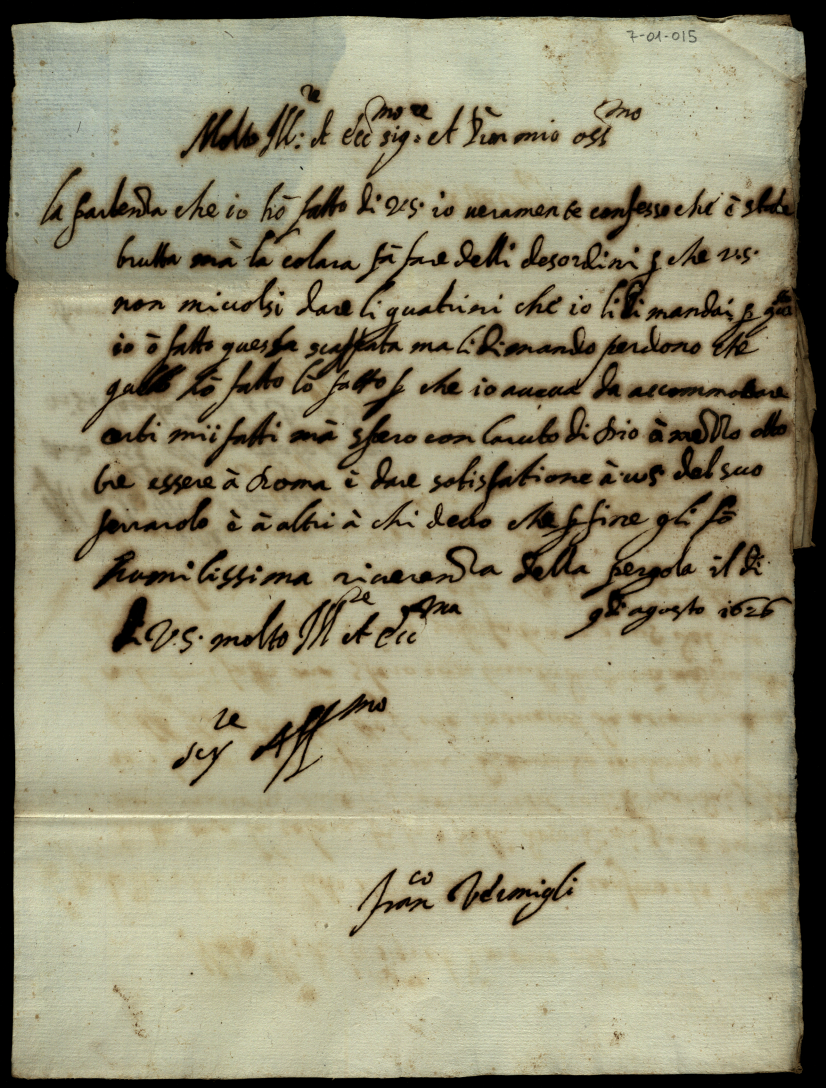 7-01-015
Molto Ill:re et ecc:mo sig:re et Pron mio oss:mo
la partenza che io hò fatto di V.S. io veramente confesso che è stata
brutta mà la colara fà fare delli desordini p che V.S.
non mi volsi dare li quatrini che io li dimandai p
io ò fatto questa scappata ma li dimando perdono che
quello hò fatto lò fatto p che io aveva da accommodare
certi mii fatti mà spero con l'aiuto di Dio à mezzo otto
bre essere à Roma è dare sotisfatione à V.S. del suo
ferrarolo è à altri à chi devo che p fine gli fò
humilissima riverenza della pergola il di
di V.S. molto Ill:re et ecc:ma 9 di agosto 1626
ser:re Aff:mo
Fran:co Vermigli